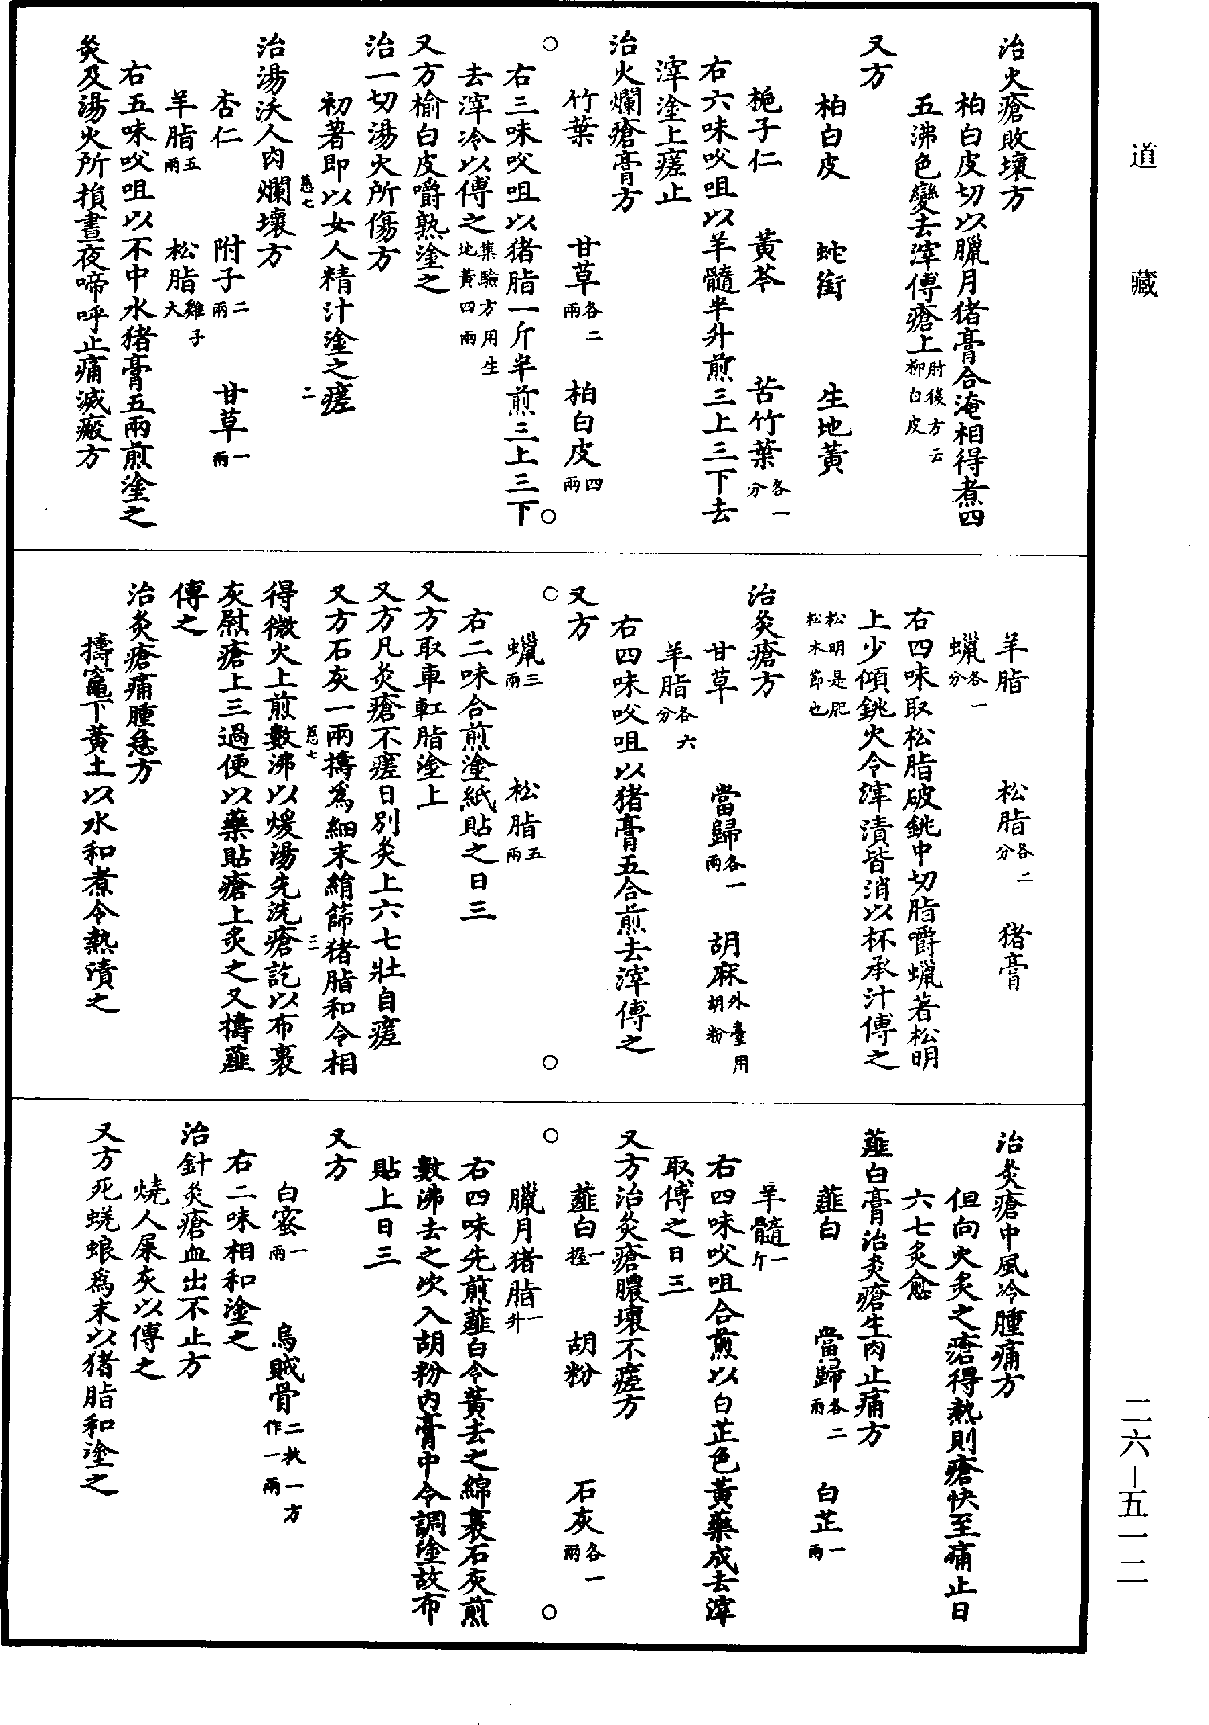 道藏
治火瘡敗壞方
柏白皮切以臘月猪膏合淹相得煮四
五沸色變去滓傅瘡上肘後方云柳白皮
又方
柏白皮　蛇銜　生地黃
梔子仁　黃芩　苦竹葉各一分
右六味㕮咀以羊髓半升煎三上三下去
滓塗上瘥止
治火爛瘡膏方
竹葉　甘草各二兩　柏白皮四兩
右三味㕮咀以猪脂一斤半煎三上三下
去滓冷以傅之集驗方用生地黃四兩
又方榆白皮嚼熟塗之
治一切湯火所傷方
初著即以女人精汁塗之瘥
慈七　二
治湯沃人肉爛壞方
杏仁　附子二兩　甘草一兩
羊脂五兩　松脂雞子大
右五味㕮咀以不中水猪膏五兩煎塗之
灸及湯火所損晝夜啼呼止痛滅瘢方
羊脂　松脂各二分　猪膏
蠟各一分
右四味取松脂破銚中切脂嚼蠟著松明
上少傾銚火令滓漬皆消以杯承汁傅之
松明是肥松木節也
治灸瘡方
甘草　當歸各一兩　胡麻外臺用胡粉
羊脂各六分
右四味㕮咀以猪膏五合煎去滓傅之
又方
蠟三兩　松脂五兩
右二味合煎塗紙貼之日三
又方取車釭脂塗上
又方凡灸瘡不瘥日別灸上六七壯自瘥
又方石灰一兩擣爲細末絹篩猪脂和令相
慈七　三
得微火上煎數沸以煖湯先洗瘡訖以布裹
灰熨瘡上三過便以藥貼瘡上炙之又擣薤
傅之
治灸瘡痛腫急方
擣竈下黃土以水和煮令熱漬之
治灸瘡中風冷腫痛方
但向火炙之瘡得熱則瘡快至痛止日
六七炙愈
薤白膏治灸瘡生肉止痛方
薤白　當歸各二兩　白芷一兩
羊髓一斤
右四味㕮咀合煎以白芷色黃藥成去滓
取傅之日三
又方治灸瘡膿壞不瘥方
薤白一握　胡粉　石灰各一兩
臘月猪脂一升
右四味先煎薤白令黃去之綿裹石灰煎
數沸去之次入胡粉內膏中令調塗故布
貼上日三
又方
白蜜一兩　烏賊骨二枚一方作一兩
右二味相和塗之
治針灸瘡血出不止方
燒人屎灰以傅之
又方死蜣蜋爲末以猪脂和塗之
二六—五一二